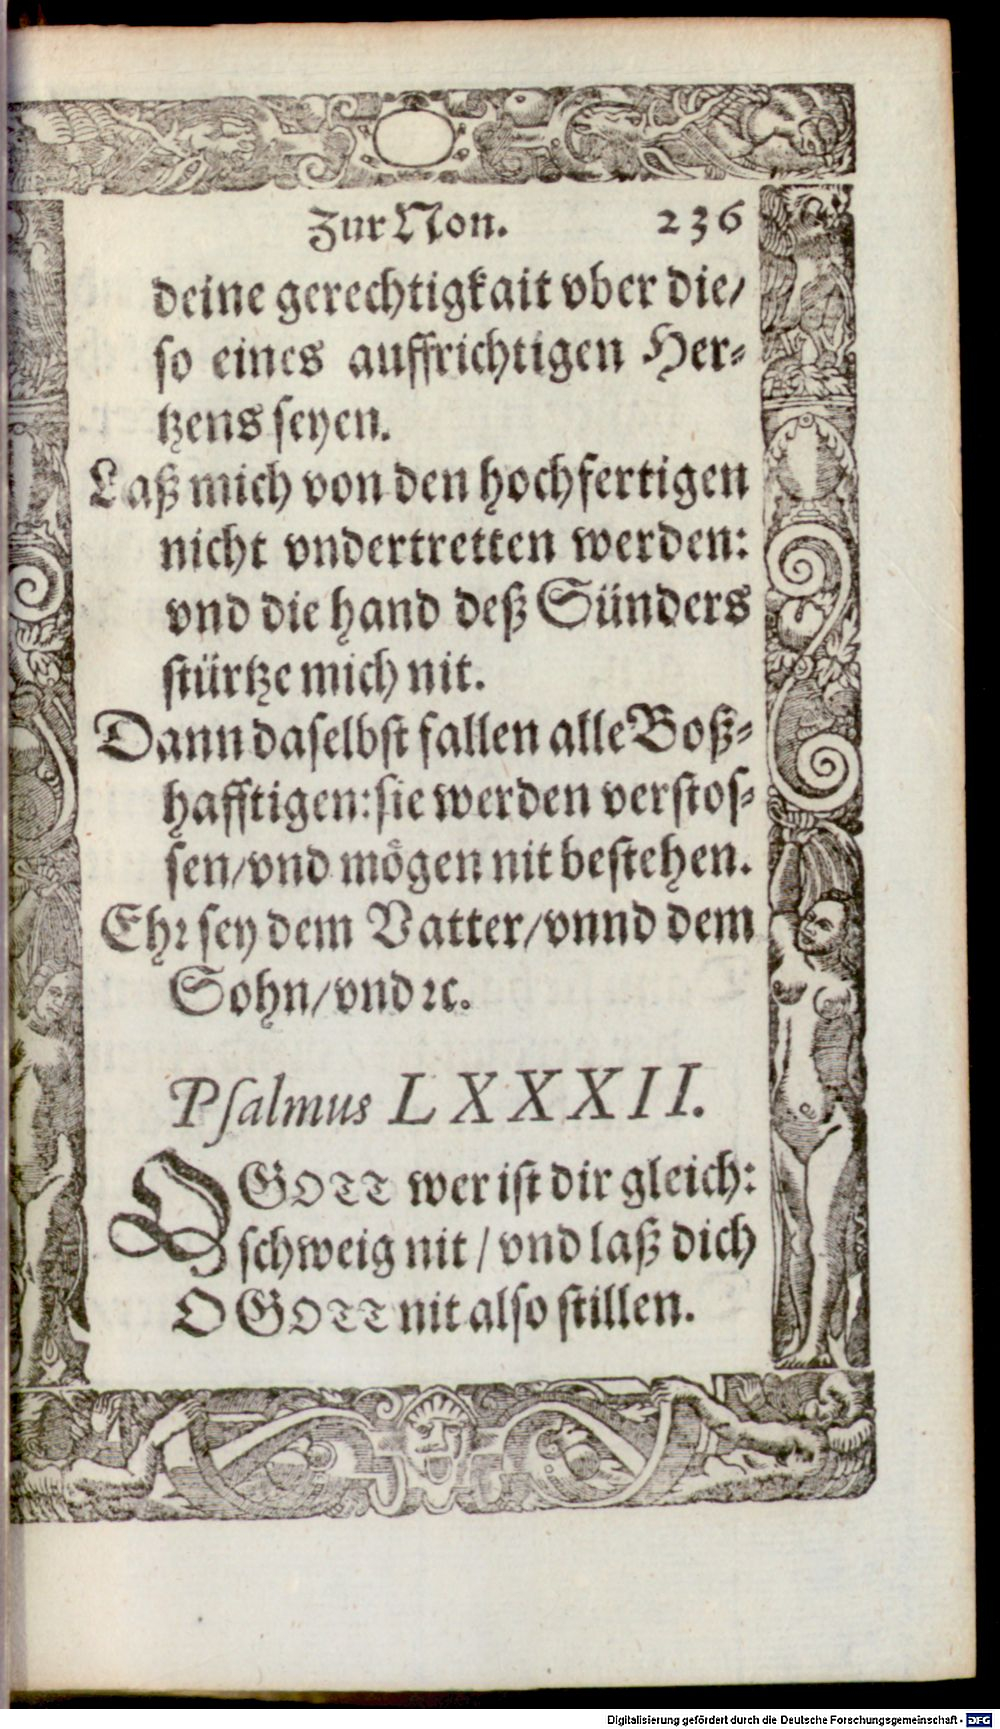 Zur Non. 236
deine gerechtigkait vber die/
so eines auffrichtigen Her⸗
tzens seyen.
Laß mich von den hochfertigen
nicht vndertretten werden:
vnd die hand deß Sünders
stürtze mich nit.
Dann daselbst fallen alle Boß⸗
hafftigen: sie werden verstos⸗
sen/vnd mögen nit bestehen.
Ehꝛ sey dem Vatter/vnnd dem
Sohn/vnd ꝛc.
Psalmus LXXXII.
O GOTT wer ist dir gleich:
schweig nit / vnd laß dich
O GOTT nit also stillen.
Digitalisierung gefördert durch die Deutsche Forschungsgemeinschaft - DFG